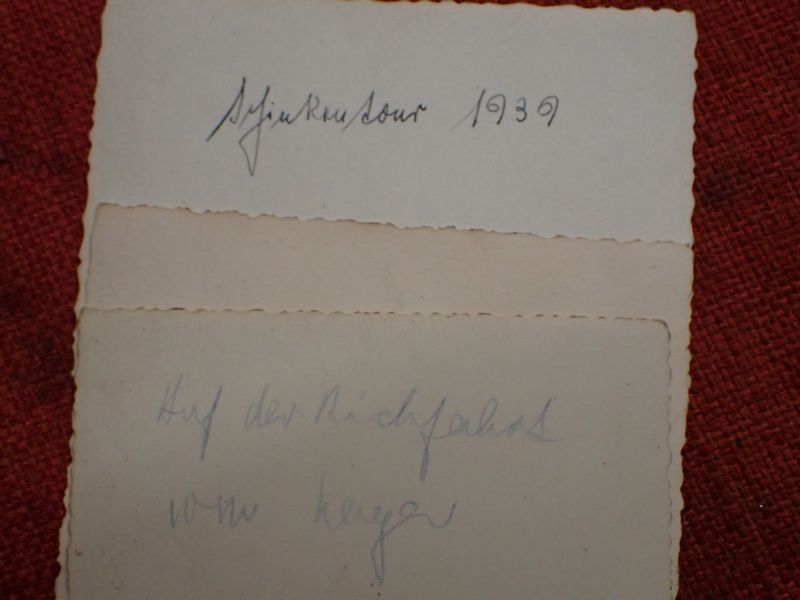 Schinkentour 1939
Auf der Rückfahrt
vom